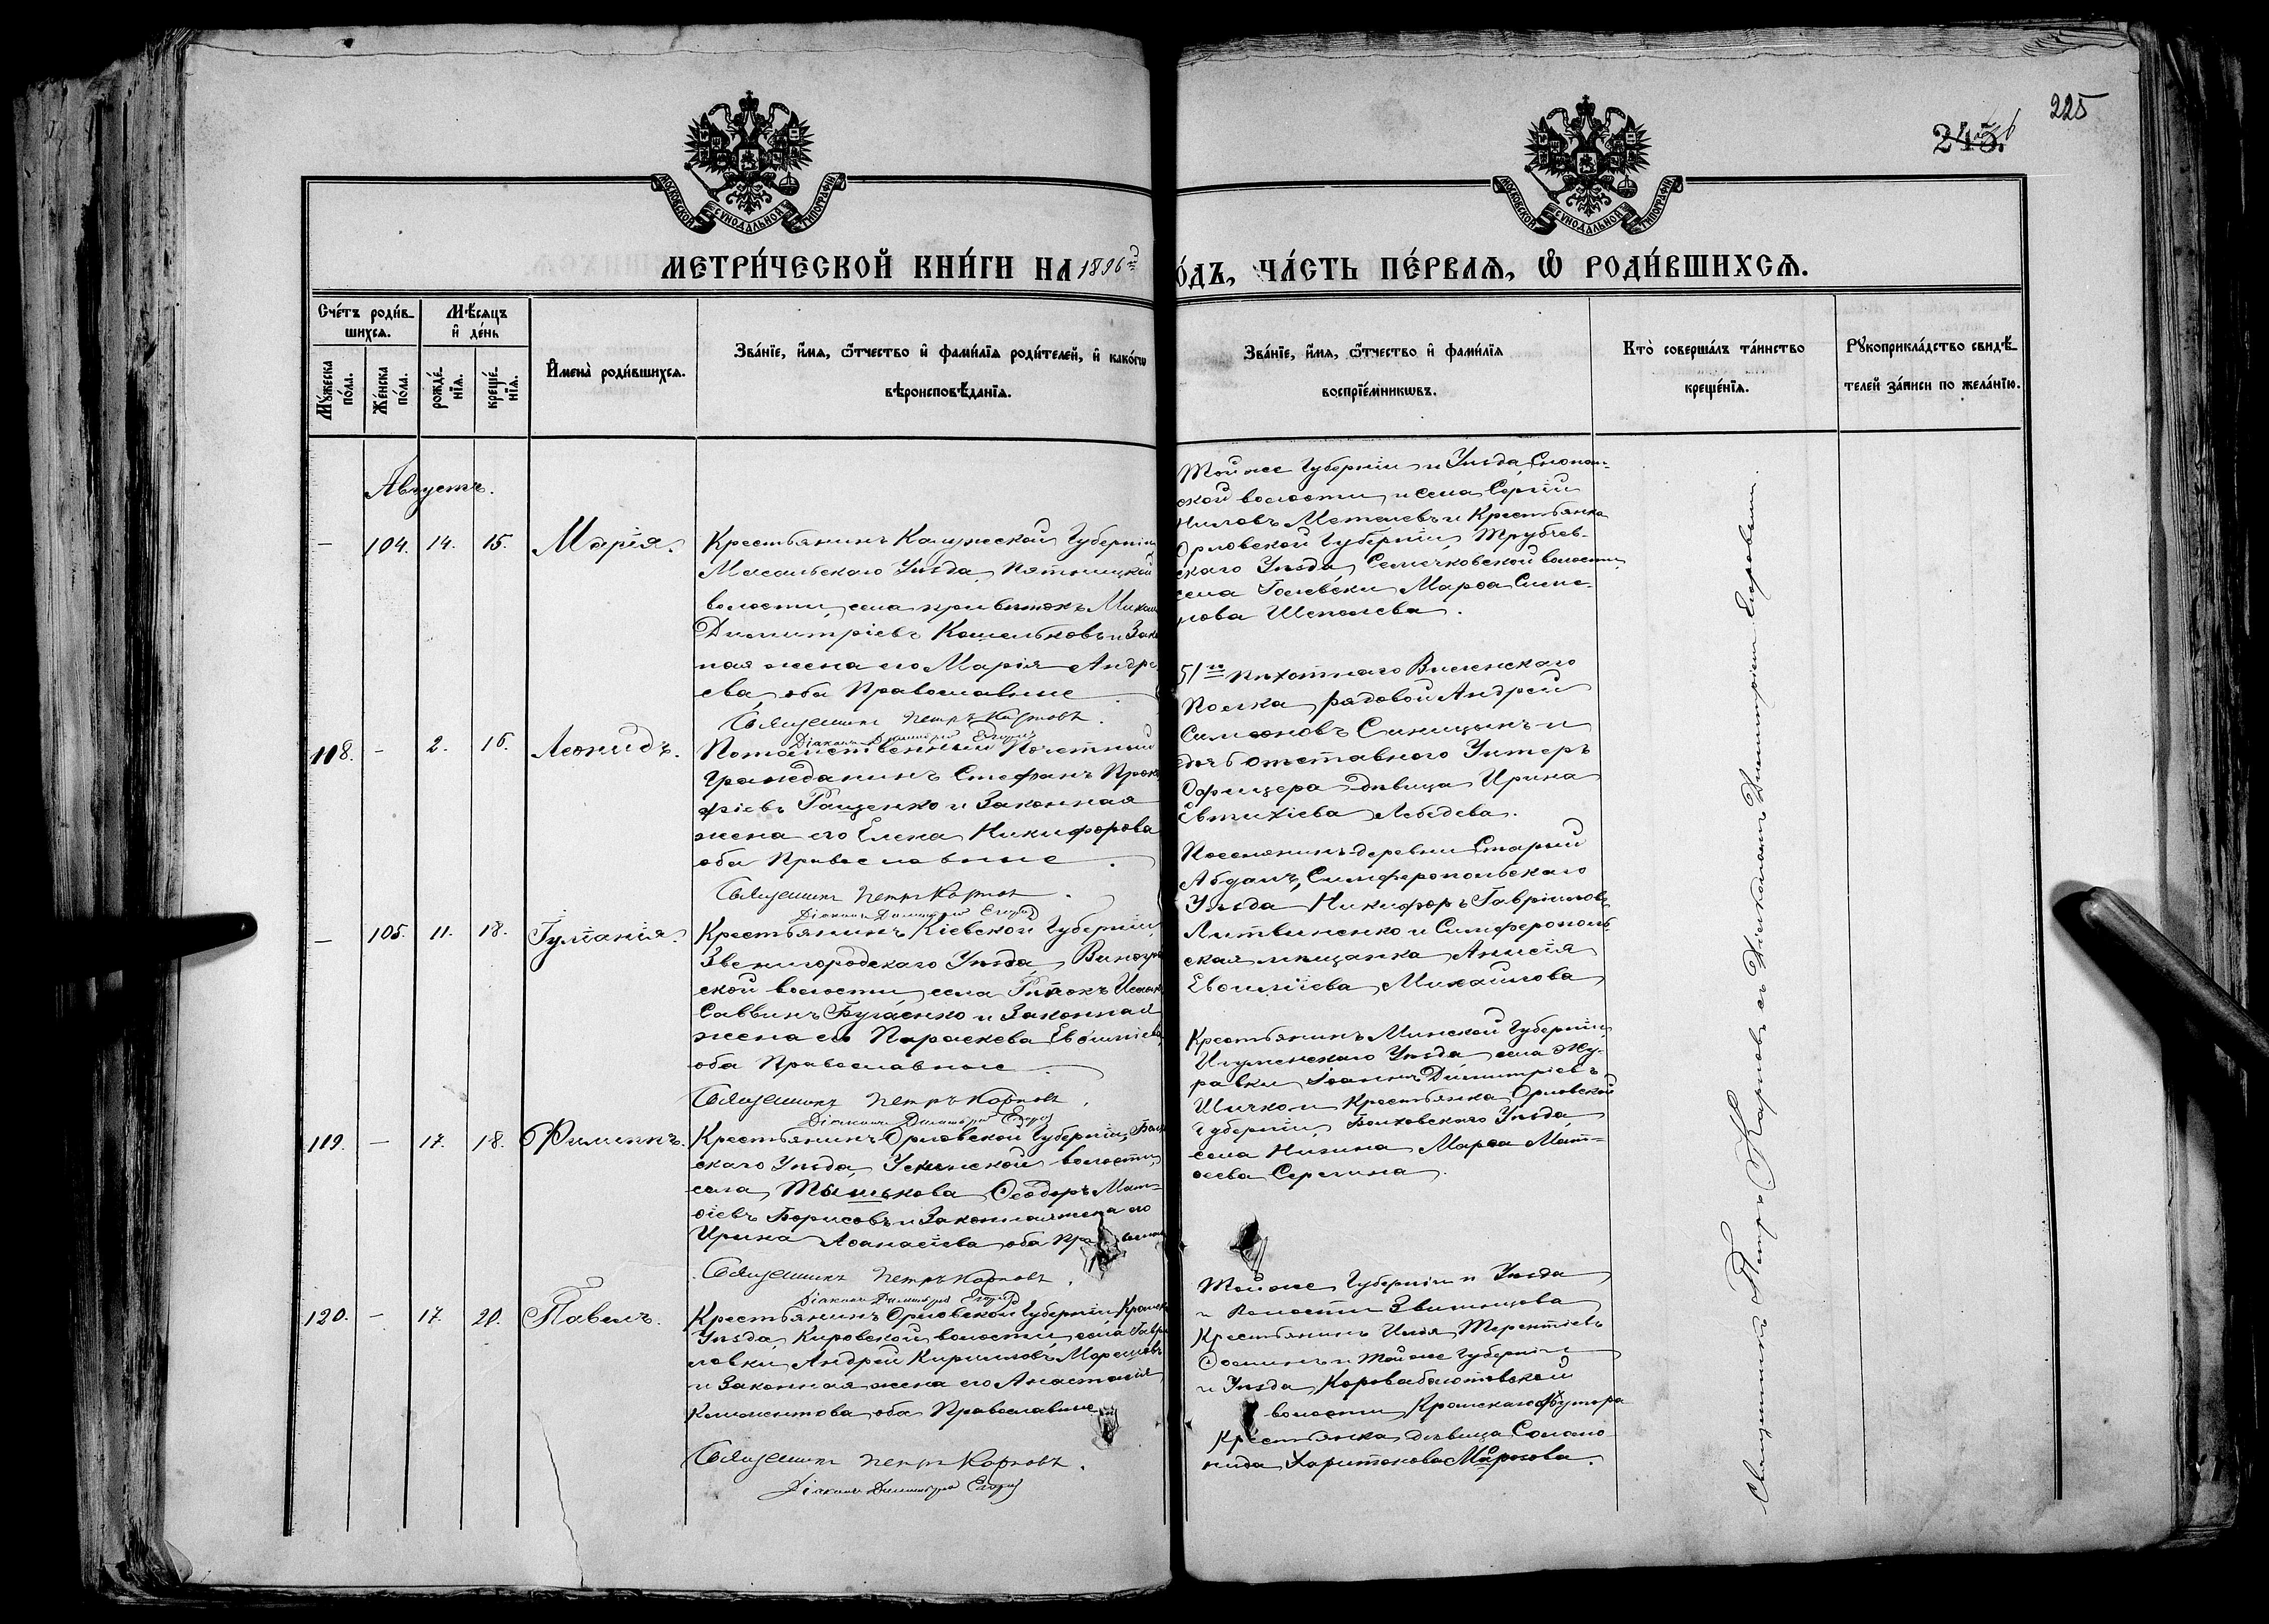 225
МОСКОВСКОЙ СѴНОДАЛЬНОЙ ТИПОГРАФІИ
МОСКОВСКОЙ СѴНОДАЛЬНОЙ ТИПОГРАФІИ
МЕТРИ́ЧЕСКОЙ КНИ́ГИ НА 1896 й
О́ДЪ, ЧА́СТЬ ПЕ́РВАѦ, Ѡ РОДИ́ВШИХСѦ.
Сче́тъ роди́в-
шихсѧ.
Мꙋ́жеска по́ла.
Же́нска по́ла.
Мѣ́сѧцъ
и҆ де́нь
рожде́-
нїѧ.
креще́-
нїѧ.
И҆мена̀ роди́вшихсѧ.
Зва́нїе, и҆́мѧ, ѻ҆́тчество и҆ фами́лїѧ роди́телей, и҆ како́гѡ
вѣроисповѣ́данїѧ.
Зва́нїе, и҆́мѧ, ѻ҆́тчество и҆ фами́лїѧ
воспрїе́мникѡвъ.
Кто̀ соверша́лъ та́инство
креще́нїѧ.
Рꙋкоприкла́дство свидѣ́-
телей за́писи по жела́нїю.
Августъ.
— 104. 14. 15. Марія.
Крестьянинъ Калужской Губерніи
Мосальскаго Уѣзда, Пятницкой
волости, села
Димитріевъ Кошельковъ и Зако
ная жена его Марія Андре
ева, оба Православные
Священникъ Петръ Карповъ.
Діаконъ Димитрій Егоровъ
Той же Губерніи и Уѣзда,
ской волости и села Сергій
Ниловъ и Крестьянка
Орловской Губерніи, Трубчев-
скаго Уѣзда, Семячковской волости
села Марѳа Симе-
нова Шепелева.
118. — 2. 16. Леонидъ.
Потомственный Почетный
Гражданинъ Стефанъ Прок
фіевъ Ращенко и Законная
жена его Елена Никифорова
оба Православные.
Священникъ Петръ Карповъ
Діаконъ Димитрій Егоровъ
51го пѣхотнаго Виленскаго
Полка рядовой Андрей
Симеоновъ Синицынъ и
дочь отставного Унтеръ
Офицера дѣвица Ирина
Евтихіева Лебедева.
— 105. 11. 18. Іуліанія.
Крестьянинъ Кіевской Губерніи,
Звенигородскаго Уѣзда,
ской волости, села
Саввинъ Бугаенко и Законная
жена его Параскева
оба Православные.
Священникъ Петръ Карповъ.
Діаконъ Димитрій Егоровъ
Поселянинъ деревни Старый
Абдалъ, Симферопольскаго
Уѣзда Никифоръ Гавріиловъ
Литвиненко и Симферополь
ская мѣщанка Анисія
Михайлова
119. — 17. 18. Филиппъ.
Крестьянинъ Орловской Губерніи, Болх
скаго Уѣзда, волости,
села Ѳеодоръ Мат-
ѳіевъ Борисовъ и Законная жена его
Ирина Аѳанасіева, оба
Священникъ Петръ Карповъ.
Діаконъ Димитрій Егоровъ
Крестьянинъ Минской Губерніи,
Игуменскаго Уѣзда, села Жу-
равки Іоаннъ Димитріевъ
и Крестьянка Орловской
Губерніи, Болховскаго Уѣзда,
села Марѳа Мат-
ѳеева Серегина.
120. — 17. 20. Павелъ.
Крестьянинъ Орловской Губерніи,
Уѣзда, Кировской волости, села Гаври
ловки Андрей Кирилловъ
и Законная жена его Анастасія
Климентова оба Православные
Священникъ Петръ Карповъ.
Діаконъ Димитрій Егоровъ
Той же Губерніи и Уѣзда
и Волости
Крестьянинъ Илія Терентіевъ
и той же Губерніи
и Уѣзда,
волости, хутора
Крестьянка дѣвица Соломо-
нида Харитонова
Священникъ Петръ Карповъ съ Діакономъ Димитріемъ Егоровымъ